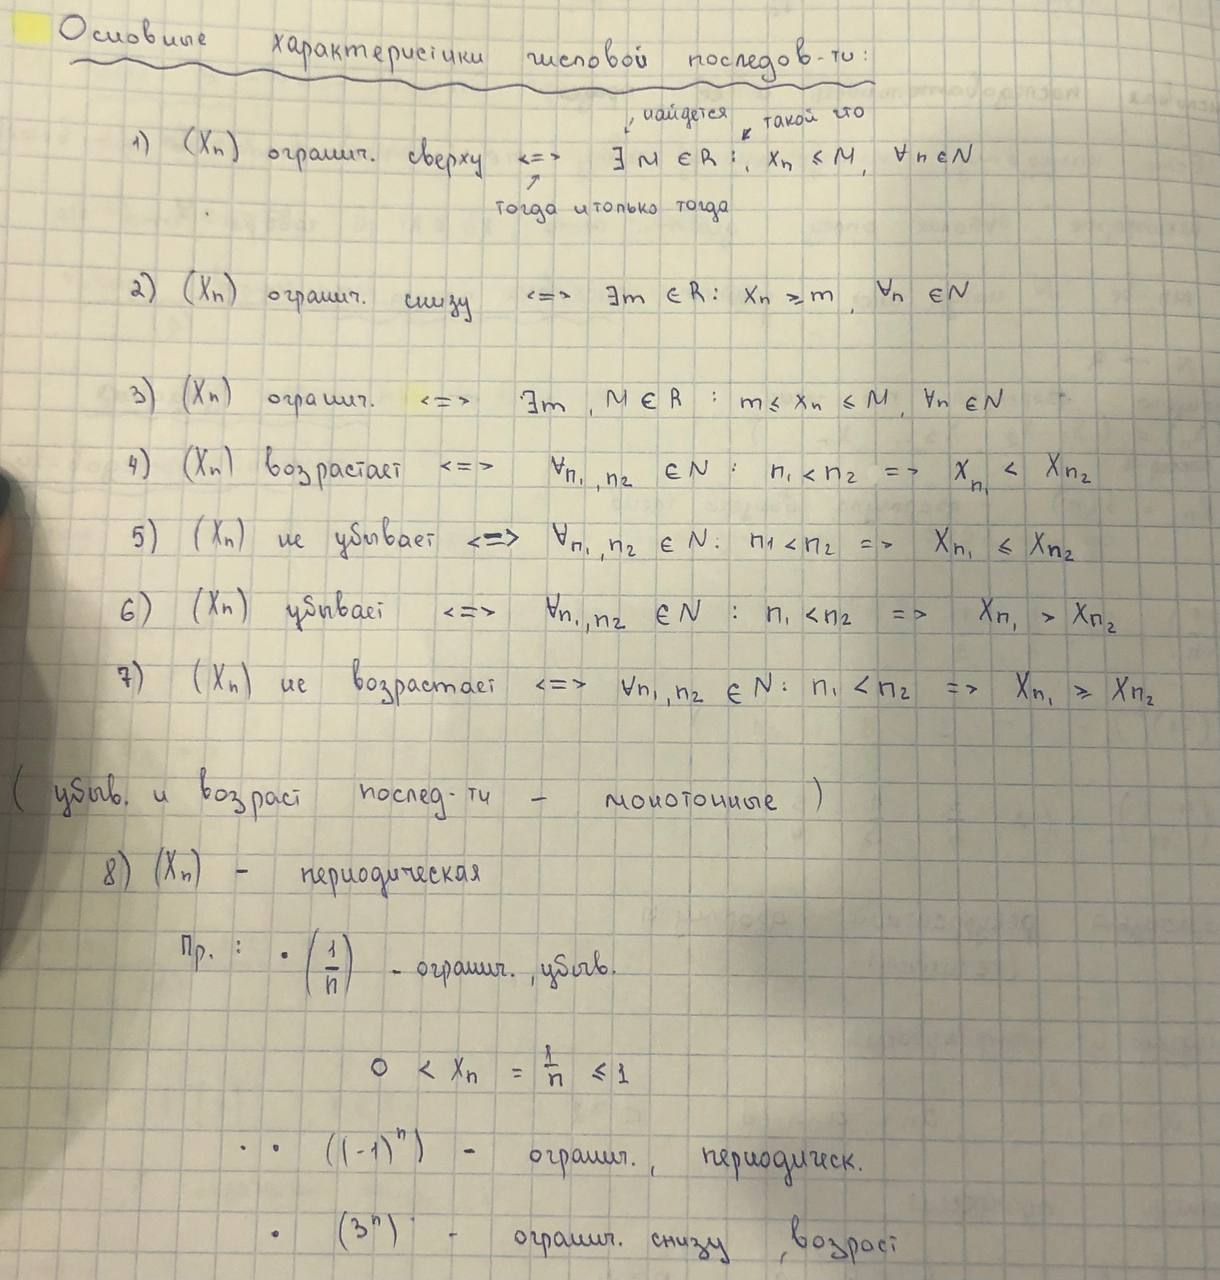 Основные характеристики числовой последов-ти:
найдется такой что
1) (Xn) огранич. сверху <=> ∃ M ∈ R : Xn ≤ M, ∀n ∈ N
тогда и только тогда
2) (Xn) огранич. снизу <=> ∃m ∈ R : Xn ≥ m, ∀n ∈ N
3) (Xn) огранич. <=> ∃m, M ∈ R : m ≤ Xn ≤ M, ∀n ∈ N
4) (Xn) возрастает <=> ∀n₁, n₂ ∈ N : n₁ < n₂ => Xn₁ < Xn₂
5) (Xn) не убывает <=> ∀n₁, n₂ ∈ N : n₁ < n₂ => Xn₁ ≤ Xn₂
6) (Xn) убывает <=> ∀n₁, n₂ ∈ N : n₁ < n₂ => Xn₁ > Xn₂
7) (Xn) не возрастает <=> ∀n₁, n₂ ∈ N : n₁ < n₂ => Xn₁ ≥ Xn₂
(убыв. и возраст послед-ти - монотонные)
8) (Xn) - периодическая
Пр. : • (1/n) - огранич., убыв.
0 < Xn = 1/n ≤ 1
• • ((-1)ⁿ) - огранич., периодическ.
• (3ⁿ) - огранич. снизу, возраст